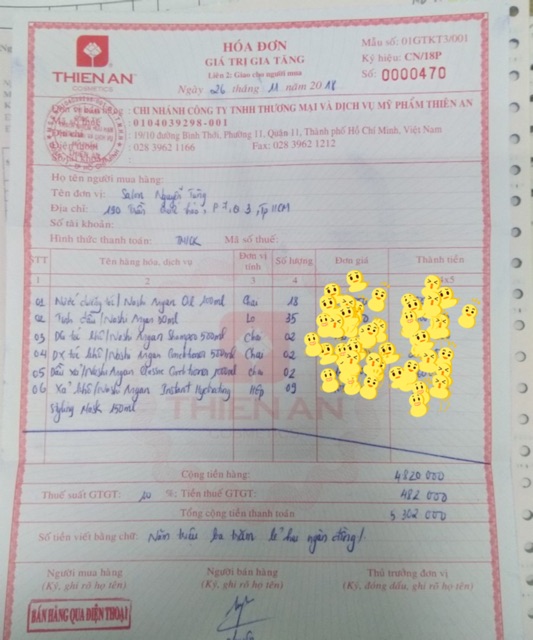 THIEN AN
COSMETICS
HÓA ĐƠN
GIÁ TRỊ GIA TĂNG
Liên 2: Giao cho người mua
Ngày 26 tháng 11 năm 2018
Mẫu số: 01GTKT3/001
Ký hiệu: CN/18P
Số: 0000470
: CHI NHÁNH CÔNG TY TNHH THƯƠNG MẠI VÀ DỊCH VỤ MỸ PHẨM THIÊN AN
: 0104039298-001
: 19/10 đường Bình Thới, Phường 11, Quận 11, Thành phố Hồ Chí Minh, Việt Nam
: 028 3962 1166 Fax: 028 3962 1212
Họ tên người mua hàng:
Tên đơn vị: Salon Nguyễn Tùng
Địa chỉ: 190 Trần Quốc Thảo, P 7, Q 3, Tp HCM
Số tài khoản:
Hình thức thanh toán: TM/CK Mã số thuế:
STT Tên hàng hóa, dịch vụ Đơn vị tính Số lượng Đơn giá Thành tiền
1 2 3 4 4x5
01 Nước dưỡng tóc/Nashi Argan Oil 100ml Chai 18
02 Tinh dầu/Nashi Argan 30ml Lo 35
03 DG tóc khô/Nashi Argan Shampoo 500ml Chai 02
04 DX tóc khô/Nashi Argan Conditioner 500ml Chai 02
05 Dầu xả/Nashi Argan Conditioner Chai 02
06 Xả khô/Nashi Argan Instant Hydrating Hộp 09
Styling Mask 150ml
THIEN AN
COSMETICS
Cộng tiền hàng: 4820 000
Thuế suất GTGT: 10 %; Tiền thuế GTGT: 482 000
Tổng cộng tiền thanh toán 5 302 000
Số tiền viết bằng chữ: Năm triệu ba trăm lẻ hai ngàn đồng!
Người mua hàng Người bán hàng Thủ trưởng đơn vị
(Ký, ghi rõ họ tên) (Ký, ghi rõ họ tên) (Ký, đóng dấu, ghi rõ họ tên)
BÁN HÀNG QUA ĐIỆN THOẠI